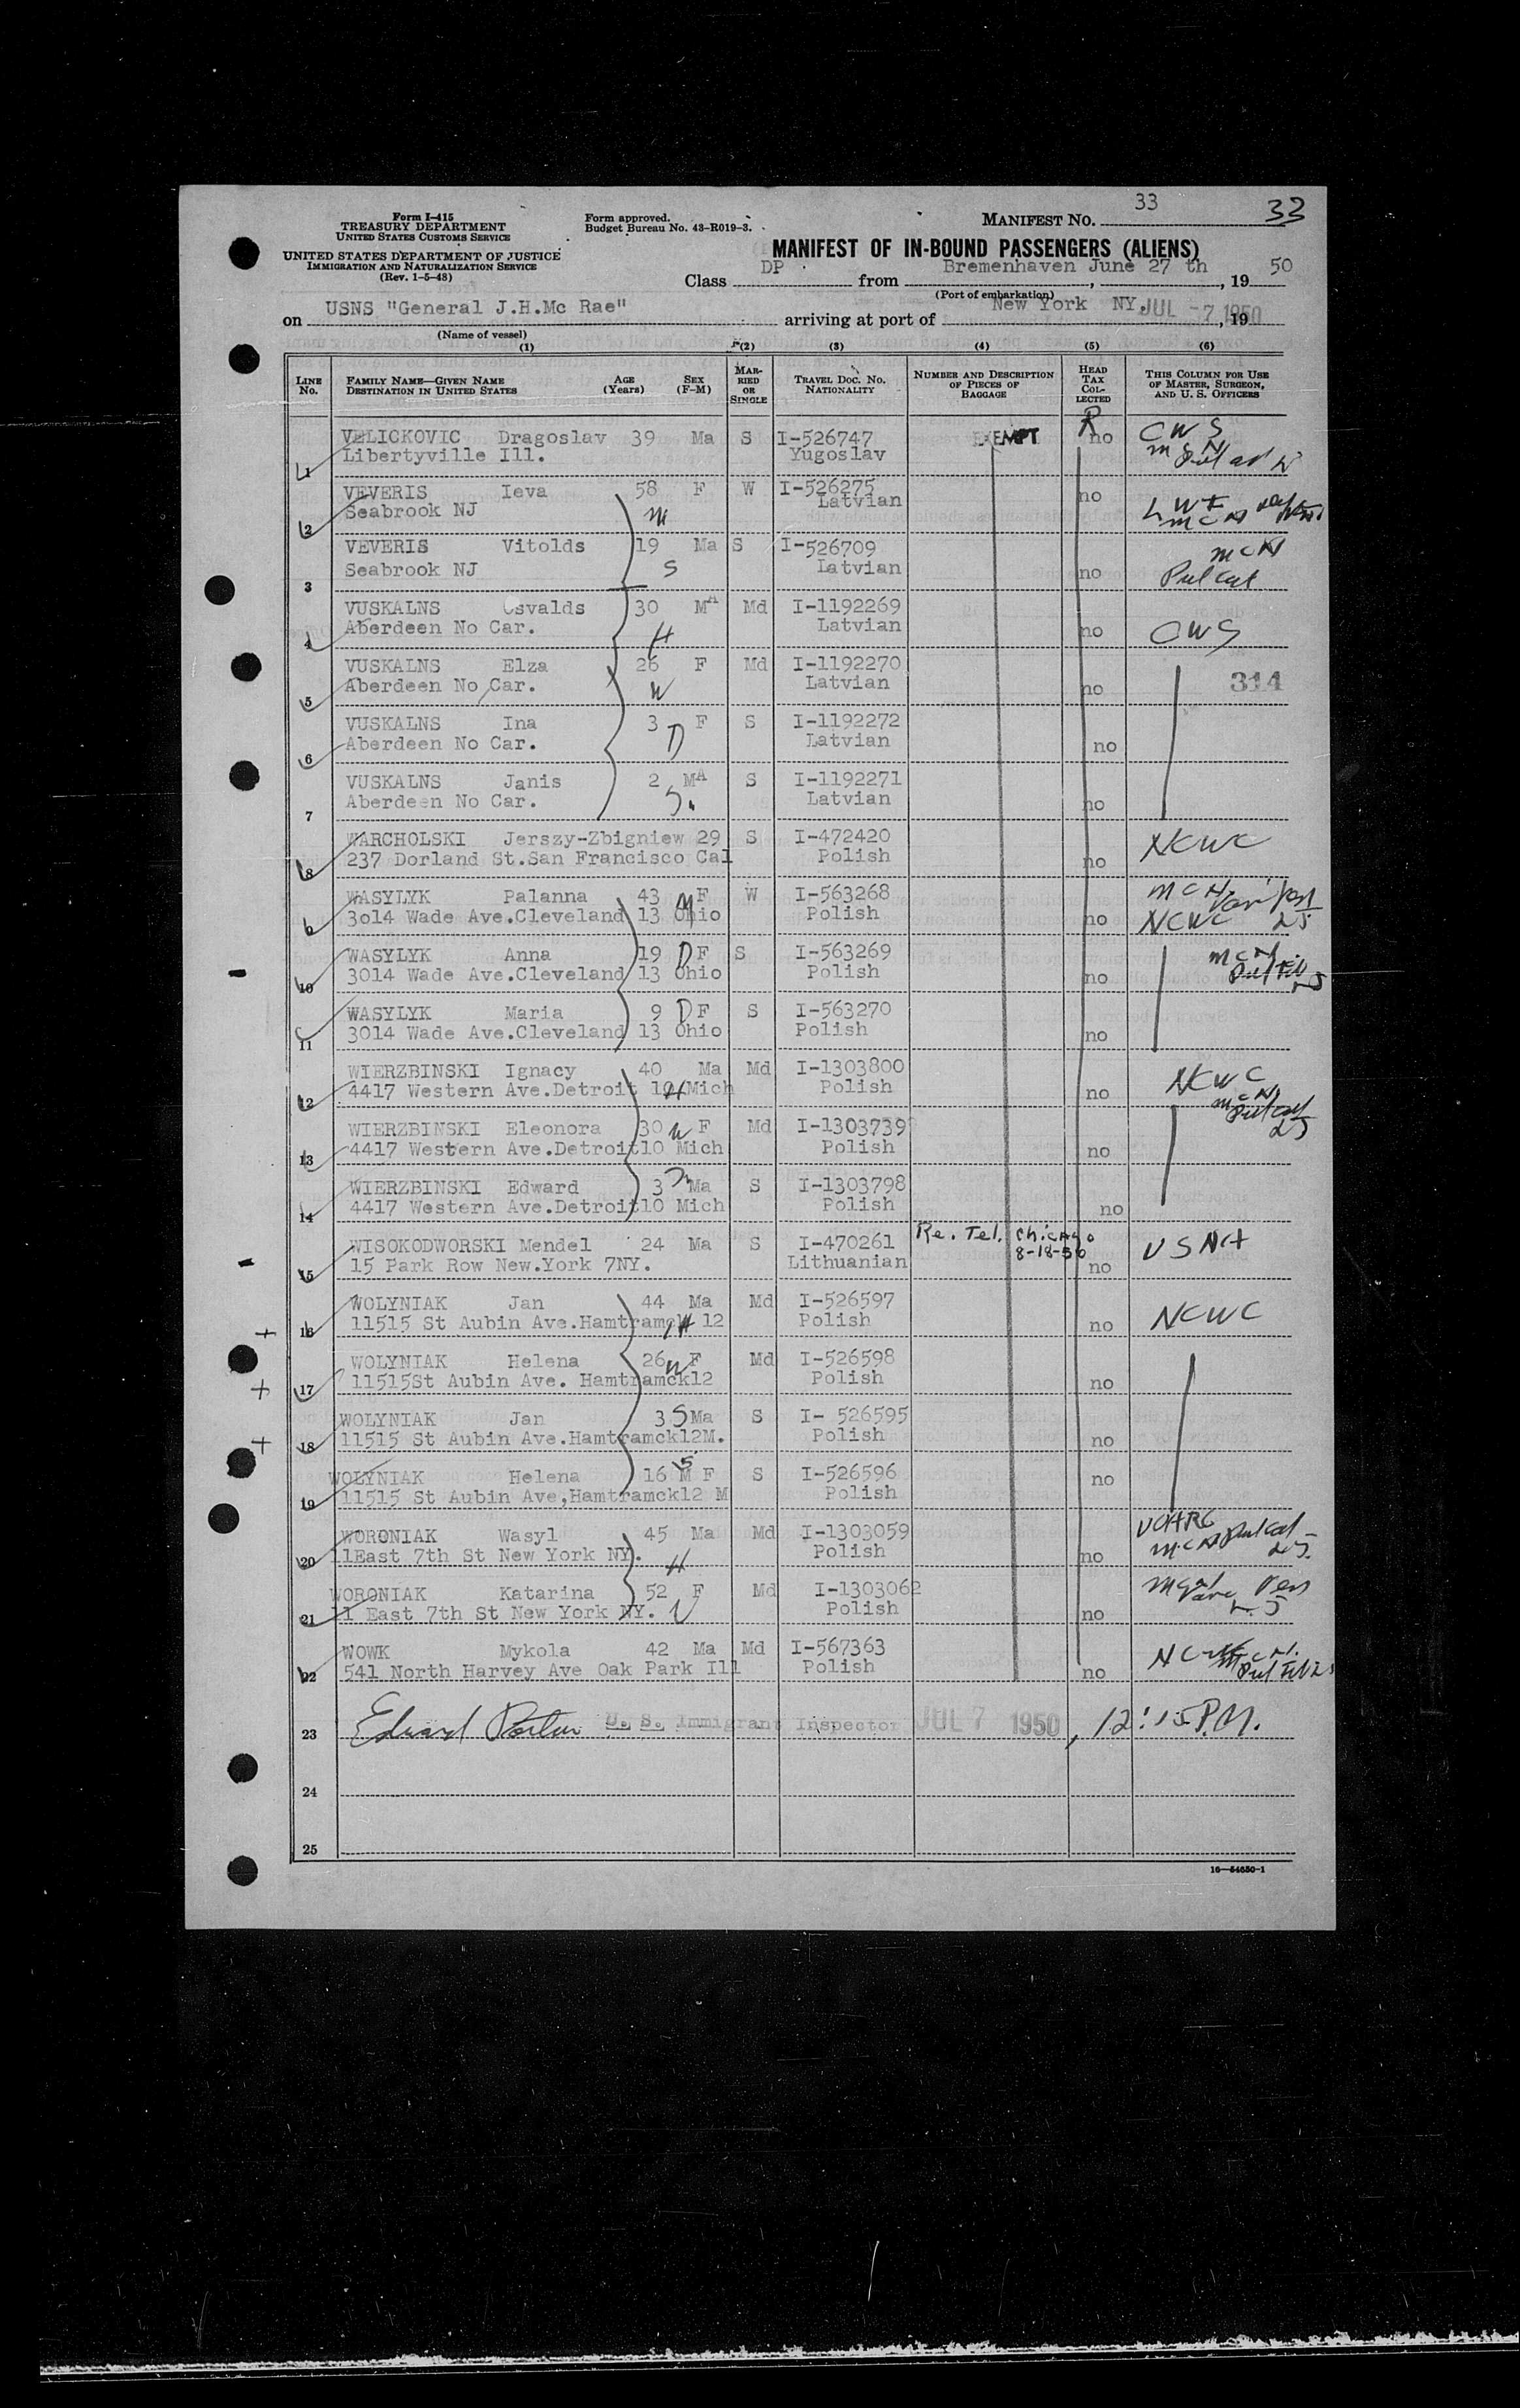 33
33
Form I-415
TREASURY DEPARTMENT
UNITED STATES CUSTOMS SERVICE
UNITED STATES DEPARTMENT OF JUSTICE
IMMIGRATION AND NATURALIZATION SERVICE
(Rev. 1-5-48)
Form approved.
Budget Bureau No. 43-R019-3.
MANIFEST NO.
MANIFEST OF IN-BOUND PASSENGERS (ALIENS)
Class DP from Bremenhaven June 27 th, 19 50
(Port of embarkation)
on USNS "General J.H.Mc Rae" arriving at port of New York NY, JUL -7 1950, 19
(Name of vessel)
(1) (2) (3) (4) (5) (6)
LINE No. FAMILY NAME—GIVEN NAME DESTINATION IN UNITED STATES AGE (Years) SEX (F-M) MARRIED OR SINGLE TRAVEL DOC. NO. NATIONALITY NUMBER AND DESCRIPTION OF PIECES OF BAGGAGE HEAD TAX COLLECTED THIS COLUMN FOR USE OF MASTER, SURGEON, AND U. S. OFFICERS
1 VELICKOVIC Dragoslav 39 Ma S I-526747 EXEMPT R no CWS
Libertyville Ill. Yugoslav
2 VEVERIS Ieva 58 F W I-526275 no
Seabrook NJ M Latvian
3 VEVERIS Vitolds 19 Ma S I-526709 McN
Seabrook NJ S Latvian no
4 VUSKALNS Osvalds 30 MA Md I-1192269
Aberdeen No Car. H Latvian no CWS
5 VUSKALNS Elza 26 F Md I-1192270 314
Aberdeen No Car. W Latvian no
6 VUSKALNS Ina 3 F S I-1192272
Aberdeen No Car. D Latvian no
7 VUSKALNS Janis 2 MA S I-1192271
Aberdeen No Car. S. Latvian no
8 WARCHOLSKI Jerszy-Zbigniew 29 S I-472420 NCWC
237 Dorland St.San Francisco Cal Polish no
9 WASYLYK Palanna 43 F W I-563268 McN
3o14 Wade Ave.Cleveland 13 Ohio M Polish no NCWC
10 WASYLYK Anna 19 D F S I-563269 McN
3014 Wade Ave.Cleveland 13 Ohio Polish no
11 WASYLYK Maria 9 D F S I-563270
3014 Wade Ave.Cleveland 13 Ohio Polish no
12 WIERZBINSKI Ignacy 40 Ma Md I-1303800 NCWC
4417 Western Ave.Detroit 10 Mich H Polish no McN
13 WIERZBINSKI Eleonora 30 W F Md I-1303739
4417 Western Ave.Detroit10 Mich Polish no
14 WIERZBINSKI Edward 3 S Ma S I-1303798
4417 Western Ave.Detroit10 Mich Polish no
15 WISOKODWORSKI Mendel 24 Ma S I-470261 Re. Tel. Chicago 8-18-56 USNA
15 Park Row New.York 7NY. Lithuanian no
16 WOLYNIAK Jan 44 Ma Md I-526597 NCWC
11515 St Aubin Ave.Hamtramck 12 H Polish no
17 WOLYNIAK Helena 26 W F Md I-526598
11515St Aubin Ave. Hamtramck12 Polish no
18 WOLYNIAK Jan 3 S Ma S I- 526595
11515 St Aubin Ave.Hamtramck12M. Polish no
19 WOLYNIAK Helena 16 M F S I-526596 no
11515 St Aubin Ave,Hamtramck12 M Polish
20 WORONIAK Wasyl 45 Ma Md I-1303059
11East 7th St New York NY. H Polish no McN
21 WORONIAK Katarina 52 F Md I-1303062
11 East 7th St New York NY. W Polish no
22 WOWK Mykola 42 Ma Md I-567363
541 North Harvey Ave Oak Park Ill Polish no
23 Edward U. S. Immigrant Inspector JUL 7 1950, 12:15 P.M.
24
25
16—54650-1